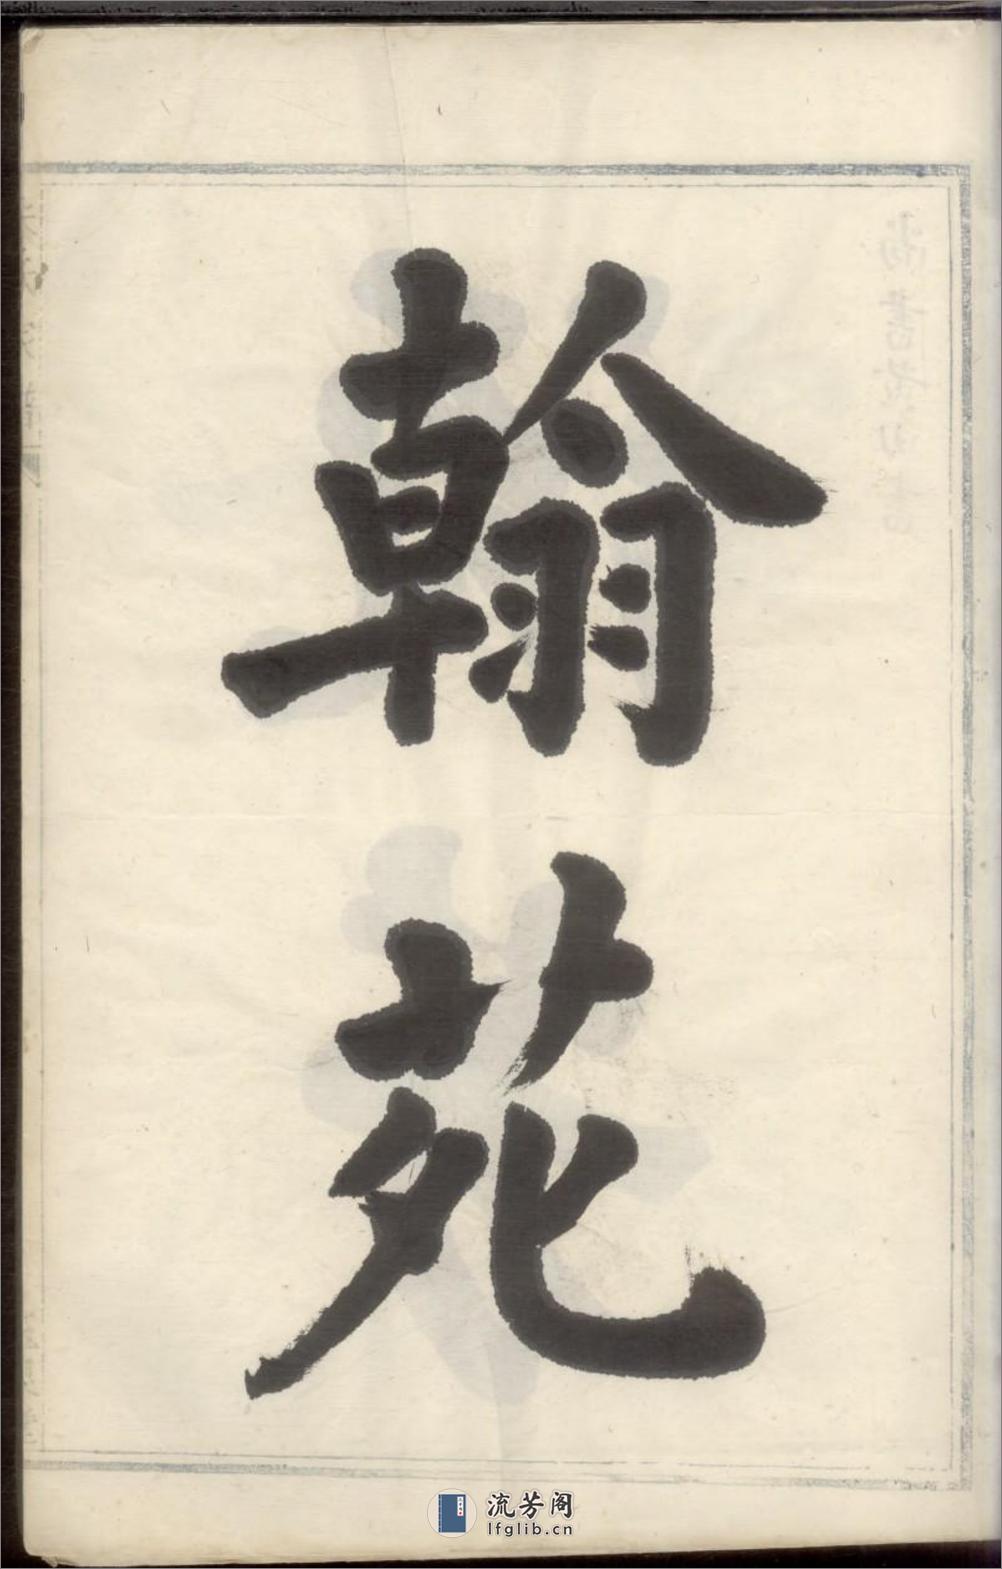 翰苑
流芳阁
lfglib.cn